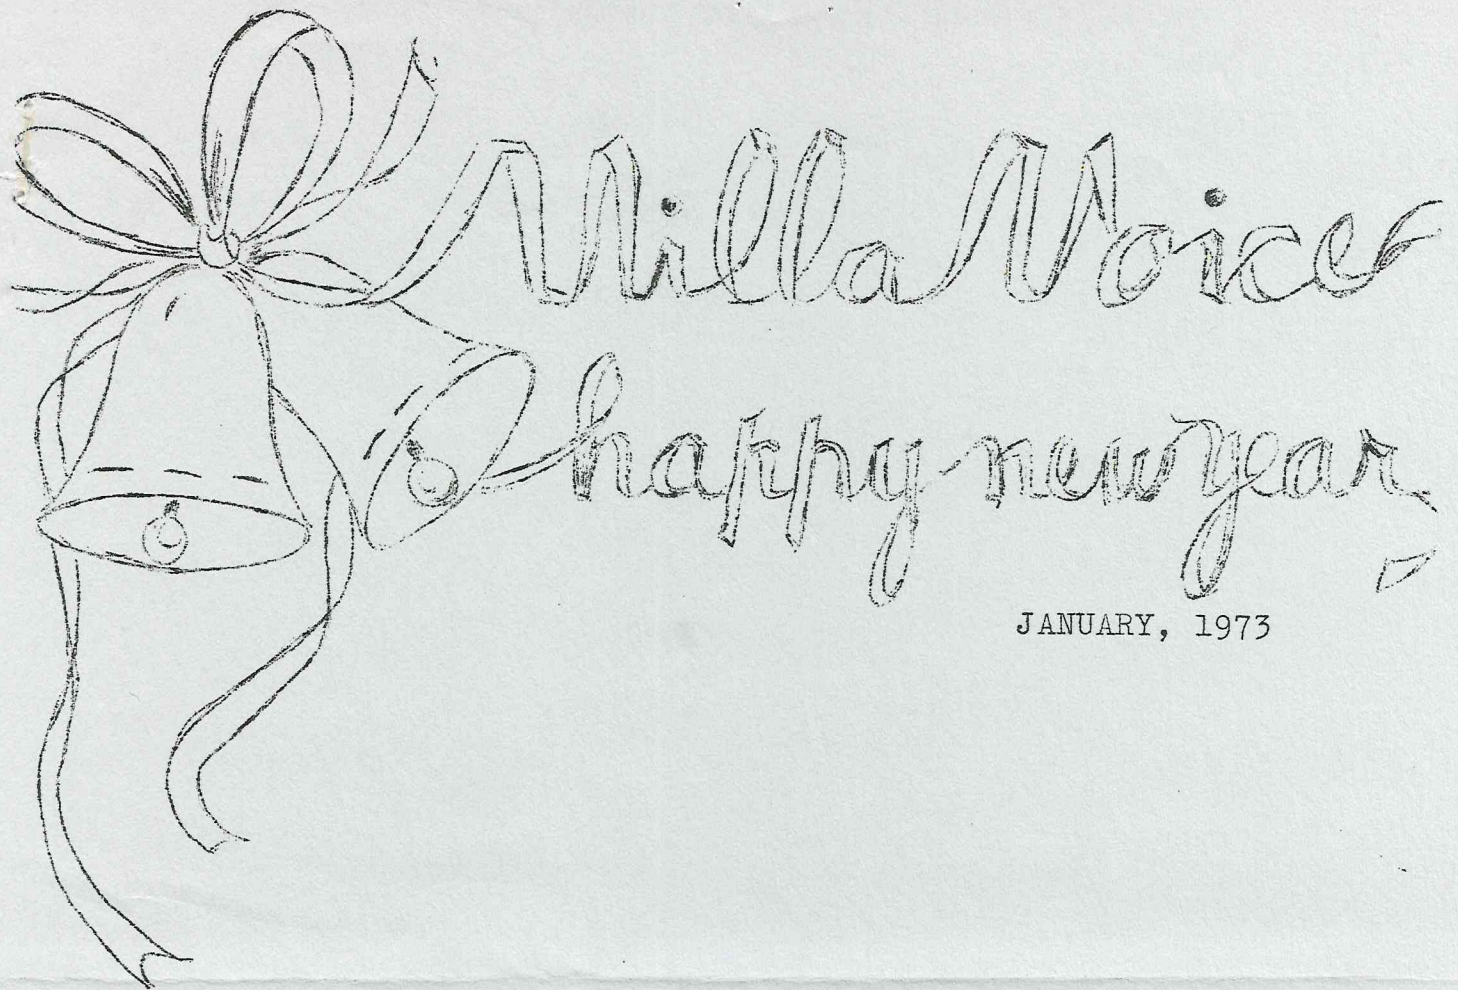 Villa Voice
happy new year
JANUARY, 1973